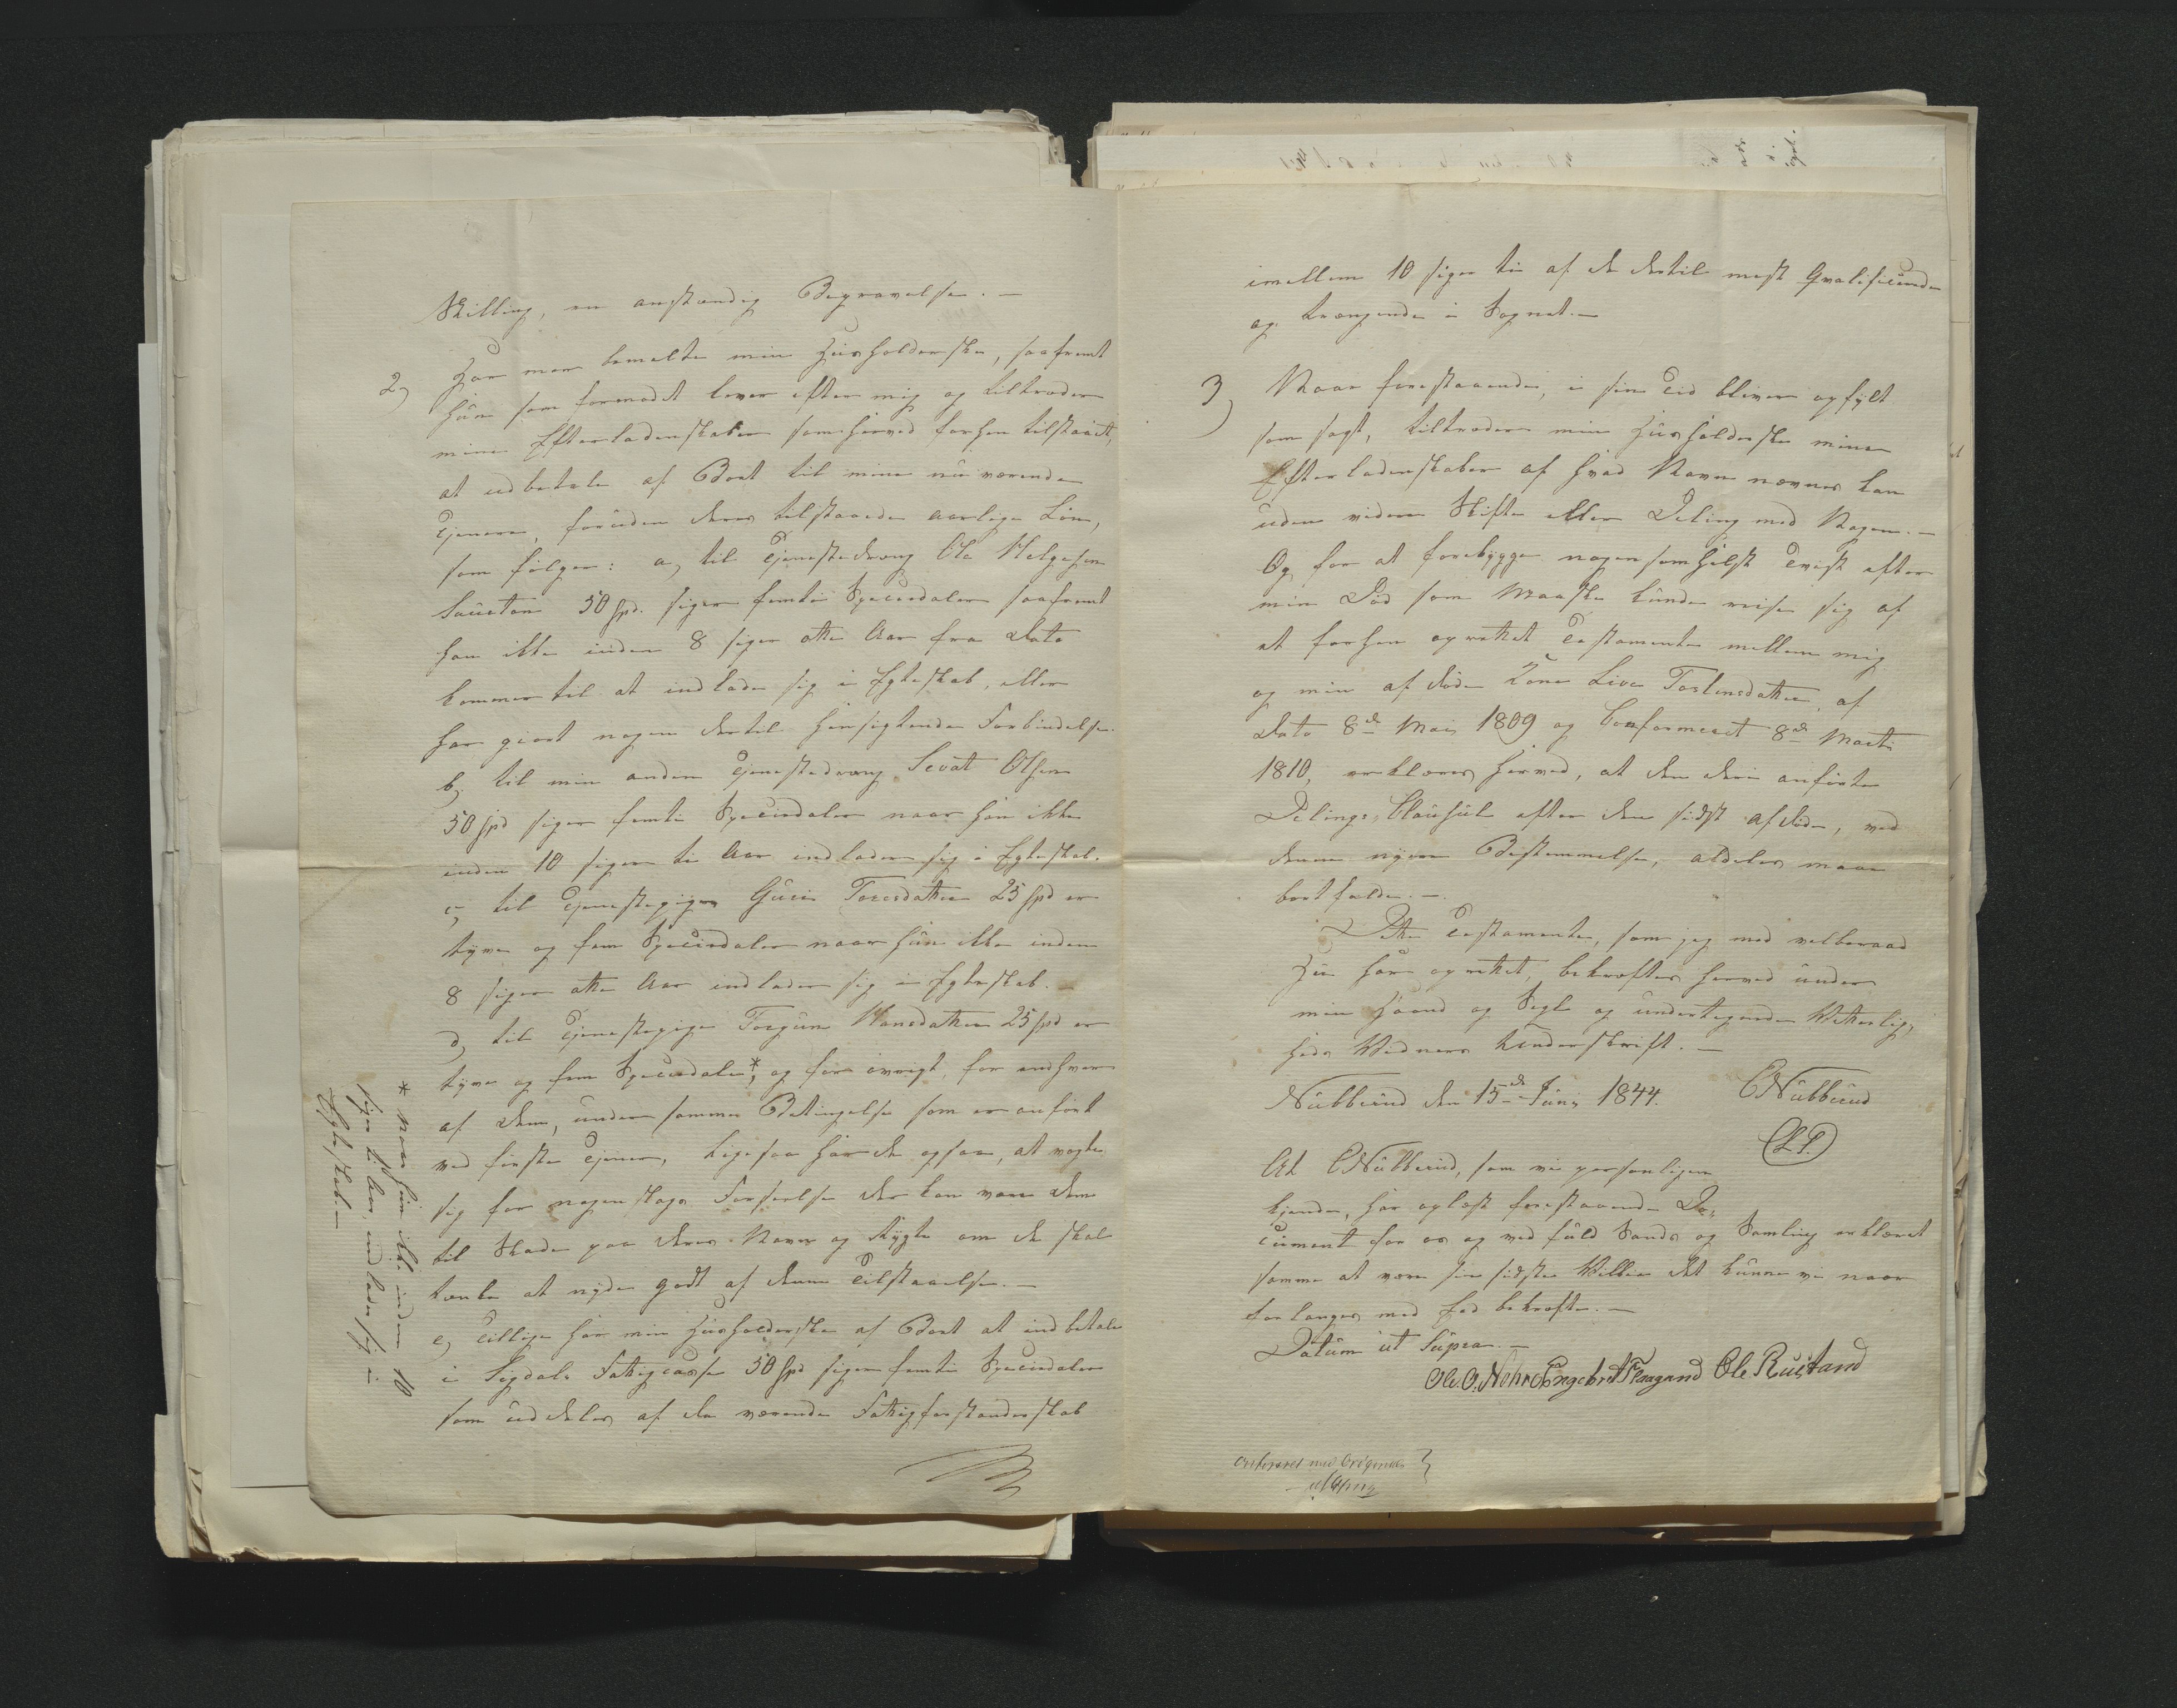 Skilling, en anstændig Begravelse. —
2) Har man bemelte min Huusholderske, saafremt
hun som formodet lever efter mig og tiltræder
mine Efterladenskaber som herved forhen tilstaaet,
at udbetale af Boet til mine nu værende
Tjenere, foruden deres tilstaaede aarlige Løn,
som følger: a, til Tjenestedreng Ole Helgesen
50 spd. siger femti Speciedaler saafremt
han ikke inden 8 siger otte Aar fra Dato
kommer til at indlade sig i Egteskab, eller
har giort nogen dertil hensigtende Forbindelse.
b, til min anden Tjenestedreng Sevat Olsen
50 spd siger femti Speciedaler naar han ikke
inden 10 siger ti Aar indlader sig i Egteskab.
c, til Tjenestepigen Guri Toresdatter 25 spd er
tyve og fem Speciedaler naar hun ikke inden
8 siger otte Aar indlader sig i Egteskab. —
d, til Tjenestepige Torgun Hansdatter 25 spd er
tyve og fem Speciedaler*, og for øvrigt, for enhver
af dem, under samme Betingelse som er anført
ved første Tjener, ligesaa har de ogsaa, at vogte
sig for nogen slags Forseelse der kan være dem
til Skade paa deres Navn og Rygte om de skal
tænke at nyde godt af denne Tilstaaelse. —
e, Tillige har min Huusholderske af Boet at indbetale
i Sigdals Fattigcasse 50 spd siger femti Speciedaler
som uddeles af de værende Fattigforstanderskab
* naar hun ikke inden 10
siger ti Aar, indlader sig i
Egteskab. —
imellem 10 siger ti af de dertil mest Qvalificerede
og trængende i Sognet. —
3) Naar forestaaende, i sin Tid bliver opfyldt
som sagt, tiltræder min Huusholderske mine
Efterladenskaber af hvad Navn nævnes kan
uden videre Skifte eller Deling med Nogen. —
Og for at forebygge nogensomhelst Tvist efter
min Død som Maaske kunde reise sig af
et forhen oprettet Testamente mellem mig
og min afdøde Kone Live Torstensdatter, af
Dato 8de Mai 1809 og Confirmeret 8de Marti
1810, erklæres herved, at den deri anførte
Delings, Clausul efter den sidst afdøde, ved
denne nyere Bestemmelse, aldeles maae
bortfalde. —
Dette Testamente, som jeg med velberaad
Hu har oprettet, bekræftes herved under
min Haand og Segl og undertegnede Vitterlig,,
heds Vidners Underskrift. —
Nubberud den 15de Juny 1844. CNubberud
(L.S.)
At CNubberud, som vi personligen
kjender, har oplæst forestaaende Do,,
cument for os og med fuld Sands og Samling erklæret
samme at være sin sidste Villie det kunne vi naar
forlanges med Eed bekræfte. —
Datum ut Supra. —
Ole O. Engebret Ole Rustand